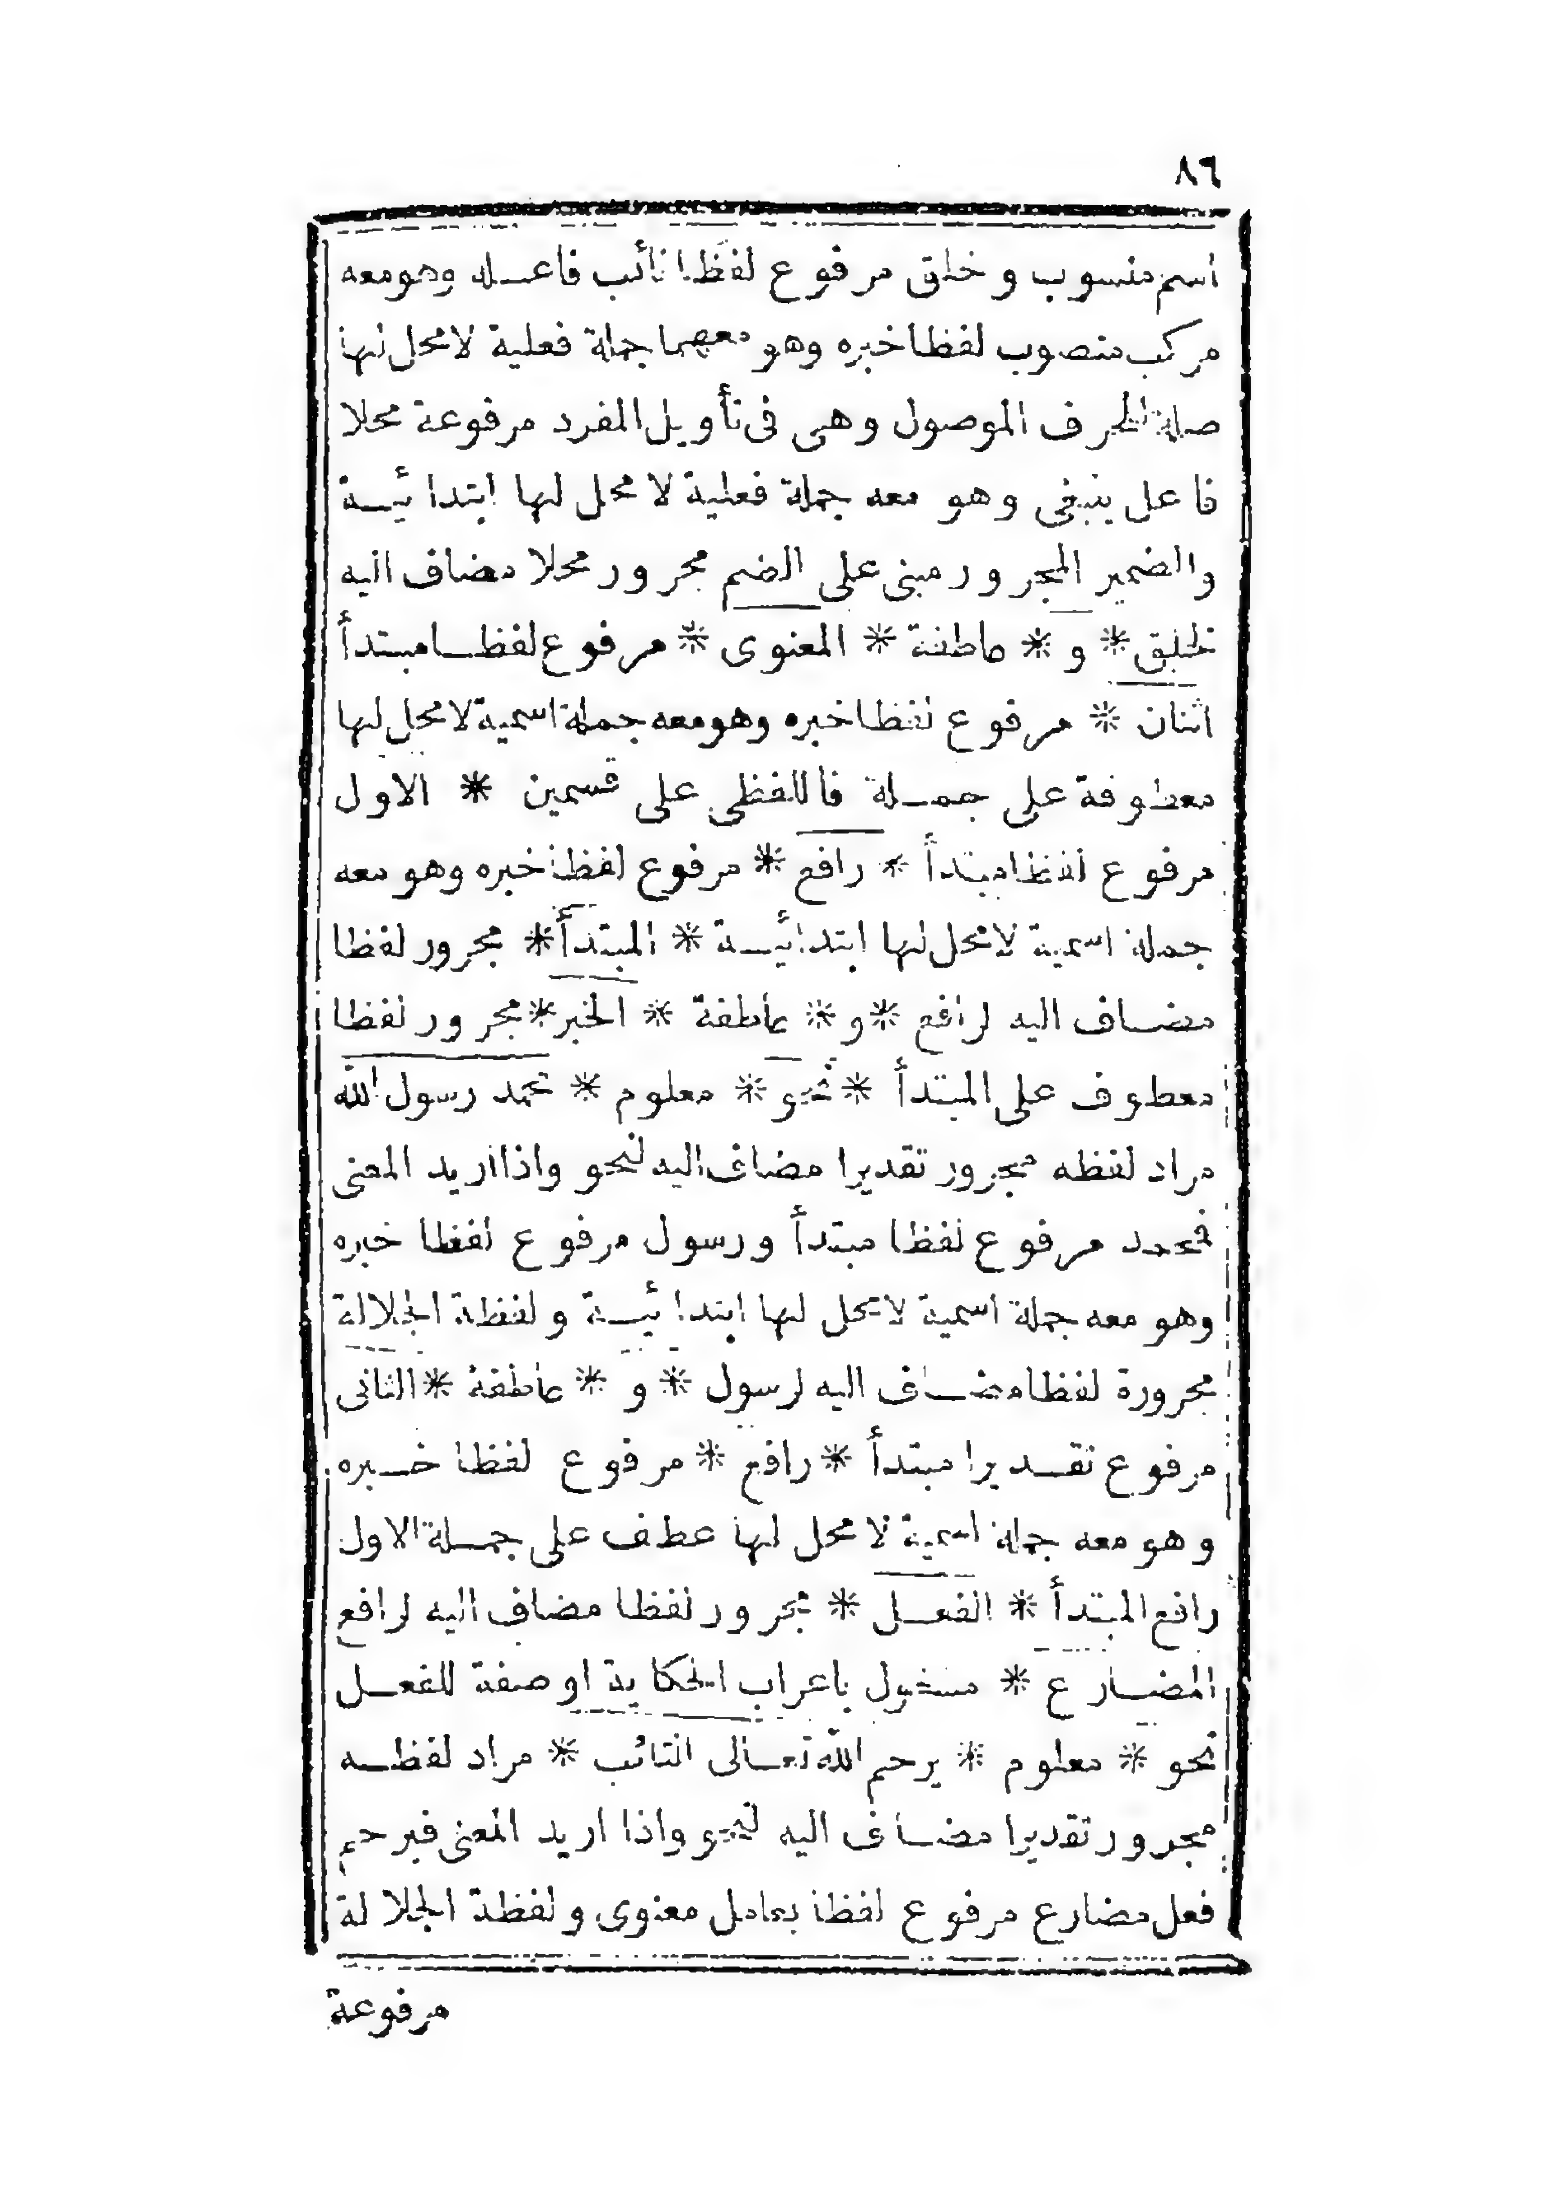 ٨٦
اسم منسوب وخلق مرفوع لفظا نائب فاعله وهومعه
مركب منصوب لفظا خبره وهو معهما جملة فعلية لامحل لها
صلة الحرف الموصول وهى فى تأويل المفرد مرفوعة محلا
فاعل ينبغى وهو معه جملة فعلية لا محل لها ابتدائية
والضمير المجرور مبنى على الضم مجرور محلا مضاف اليه
لخلق * و * عاطفة * المعنوى * مرفوع لفظا مبتدأ
اثنان * مرفوع لفظا خبره وهومعه جملة اسمية لامحل لها
معطوفة على جملة فاللفظى على قسمين * الاول
مرفوع لفظا مبتدأ * رافع * مرفوع لفظا خبره وهو معه
جملة اسمية لامحل لها ابتدائية * المبتدأ * مجرور لفظا
مضاف اليه لرافع * و * عاطفة * الخبر * مجرور لفظا
معطوف على المبتدأ * نحو * معلوم * محمد رسول الله
مراد لفظه مجرور تقديرا مضاف اليه لنحو واذا اريد المعنى
فمحمد مرفوع لفظا مبتدأ ورسول مرفوع لفظا خبره
وهو معه جملة اسمية لامحل لها ابتدائية ولفظة الجلالة
مجرورة لفظا مضاف اليه لرسول * و * عاطفة * الثانى
مرفوع تقديرا مبتدأ * رافع * مرفوع لفظا خبره
وهو معه جملة اسمية لا محل لها عطف على جملة الاول
رافع المبتدأ * الفعل * مجرور لفظا مضاف اليه لرافع
المضارع * مشغول باعراب الحكاية او صفة للفعل
نحو * معلوم * يرحم الله تعالى التائب * مراد لفظه
مجرور تقديرا مضاف اليه لنحو واذا اريد المعنى فيرحم
فعل مضارع مرفوع لفظا بعامل معنوى ولفظة الجلالة
مرفوعة